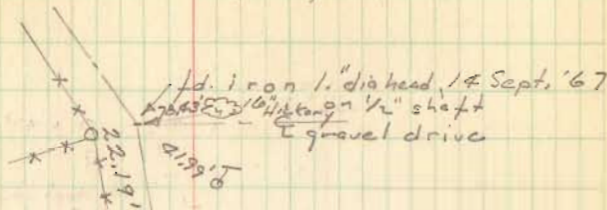 fd. iron 1." dia head, 14 Sept. '67
16" Hickory on 1/2" shaft
gravel drive
22.19'
41.99'